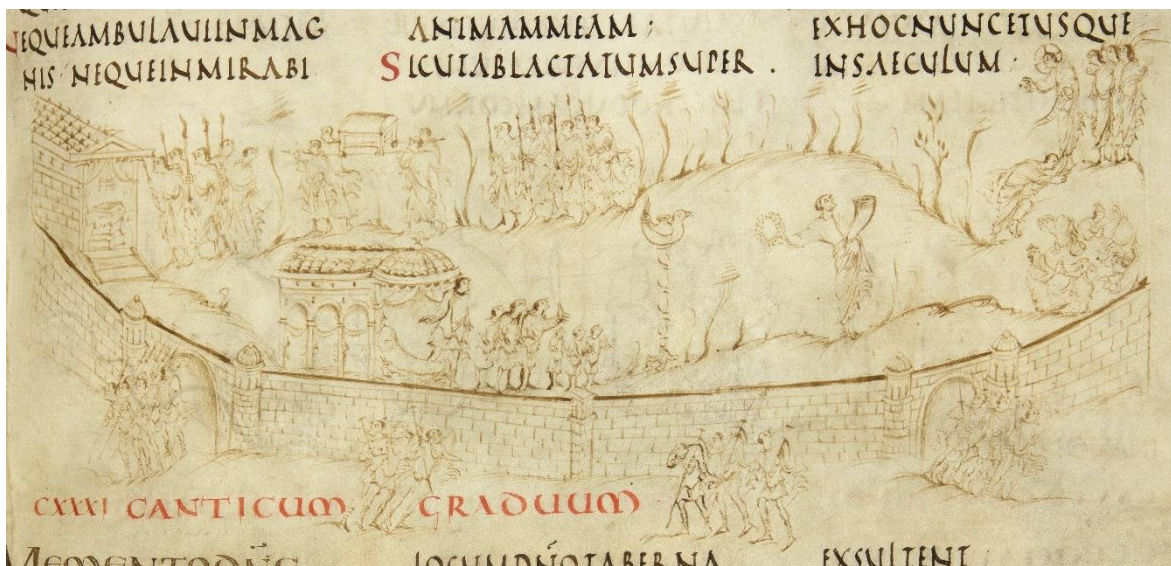 NEQUEAMBULAUIINMAG
NIS NEQUEINMIRABI
ANIMAMMEAM;
SICUTABLACTATUMSUPER.
EXHOCNUNCETUSQUE
INSAECULUM;
CXXXI CANTICUM GRADUUM
MEMENTODNE
LOCUMDNOTABERNA
EXSULTENT